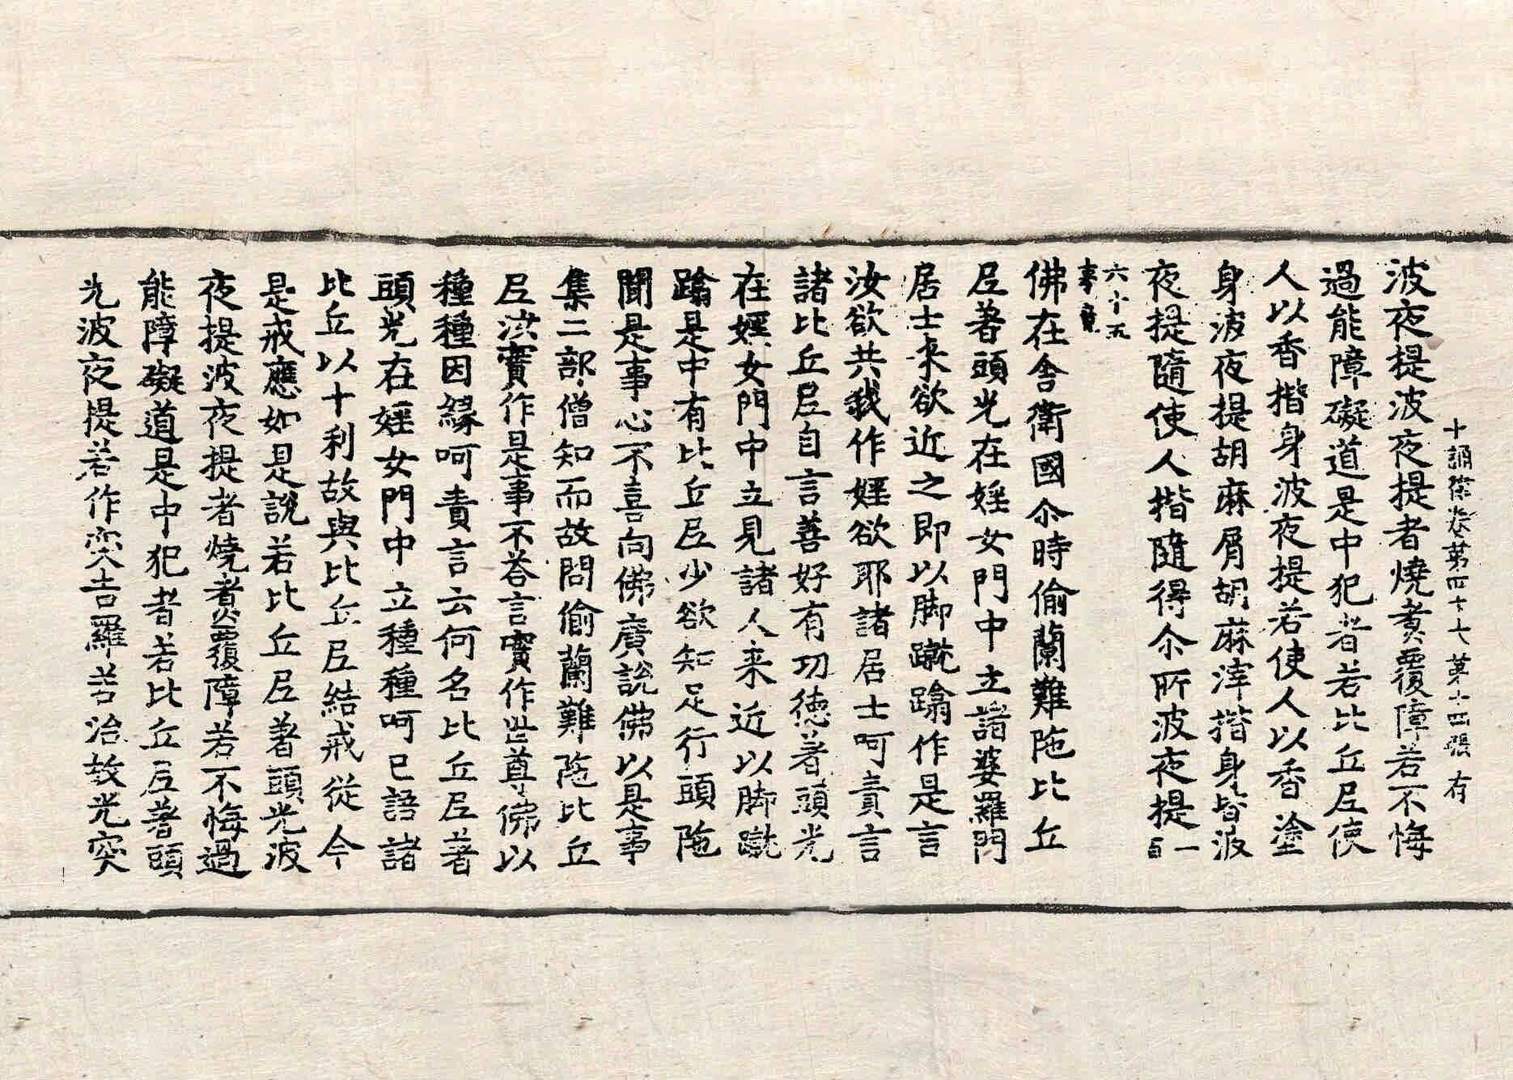 十誦律卷第四十七 第十四張 有
波夜提波夜提者燒煮覆障若不悔
過能障礙道是中犯者若比丘尼使
人以香揩身波夜提若使人以香塗
身波夜提胡麻屑胡麻滓揩身皆波
夜提隨使人揩隨得尒所波夜提一百
六十五
事竟
佛在舍衛國尒時偷蘭難陁比丘
尼著頭光在婬女門中立諸婆羅門
居士來欲近之即以脚蹴蹹作是言
汝欲共我作婬欲耶諸居士呵責言
諸比丘尼自言善好有功德著頭光
在婬女門中立見諸人来近以脚蹴
蹹是中有比丘尼少欲知足行頭陁
聞是事心不喜向佛廣說佛以是事
集二部僧知而故問偷蘭難陁比丘
尼汝實作是事不荅言實作世尊佛以
種種因緣呵責言云何名比丘尼著
頭光在婬女門中立種種呵已語諸
比丘以十利故與比丘尼結戒從今
是戒應如是說若比丘尼著頭光波
夜提波夜提者燒煮覆障若不悔過
能障礙道是中犯者若比丘尼著頭
光波夜提若作突吉羅若治故光突